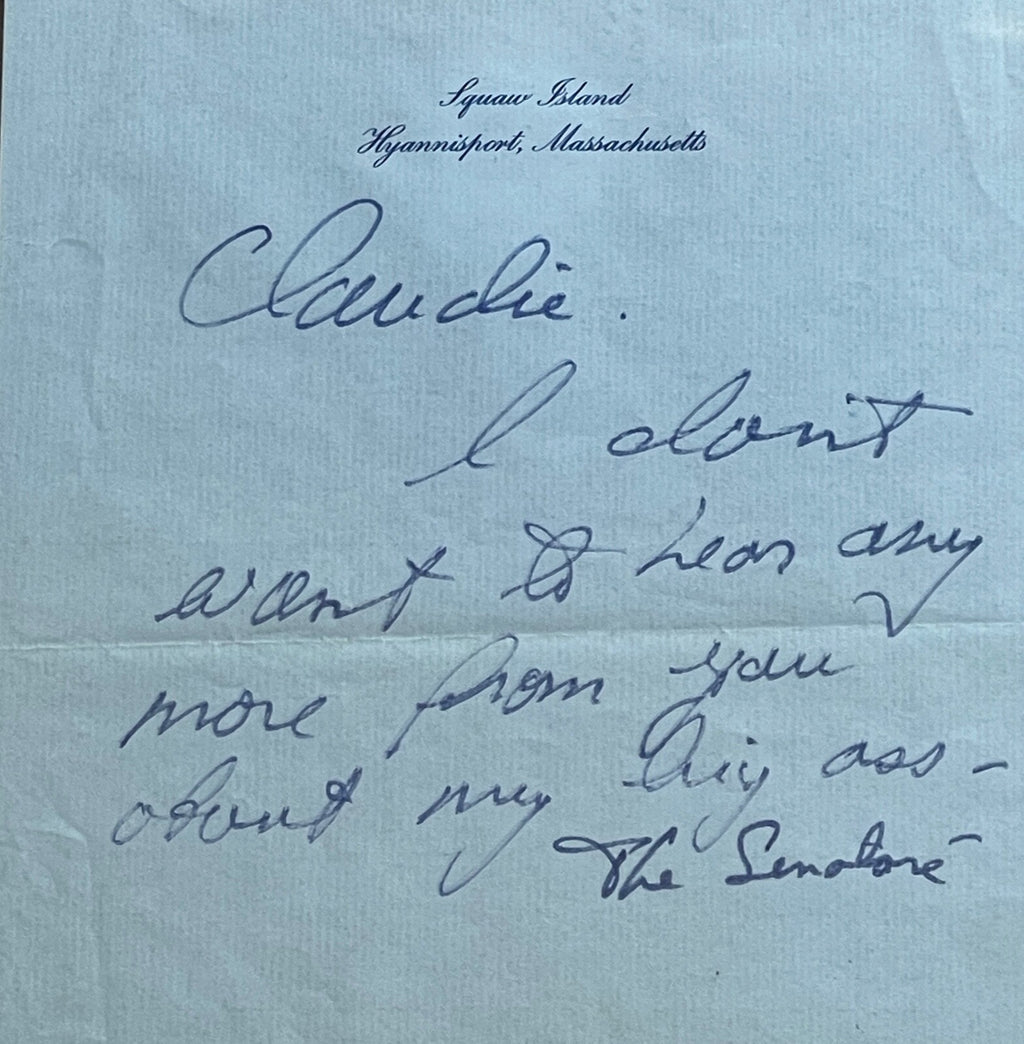 Squaw Island
Hyannisport, Massachusetts
Claudie.
I don't
want to hear any
more from you
about my big ass -
The Senatoré